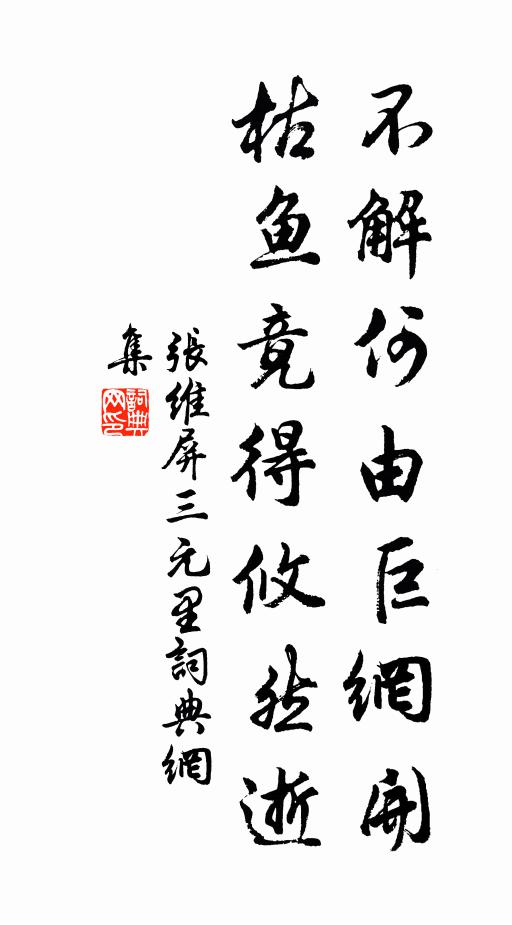 不解何由巨網開
枯鱼竟得攸然逝
張維屏三元里詞典網
集
詞典
网印